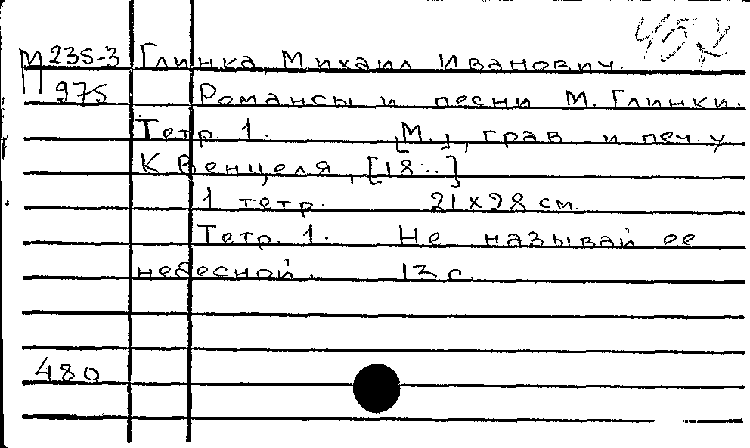 457
М 235-3 Глинка, Михаил Иванович.
П 975 Романсы и песни М. Глинки.
Тетр 1. [М.], грав и печ. у
К Венцеля, [18..]
1 тетр. 21 x 28 см.
Тетр. 1. Не называй ее
небесной. 13 с.
480